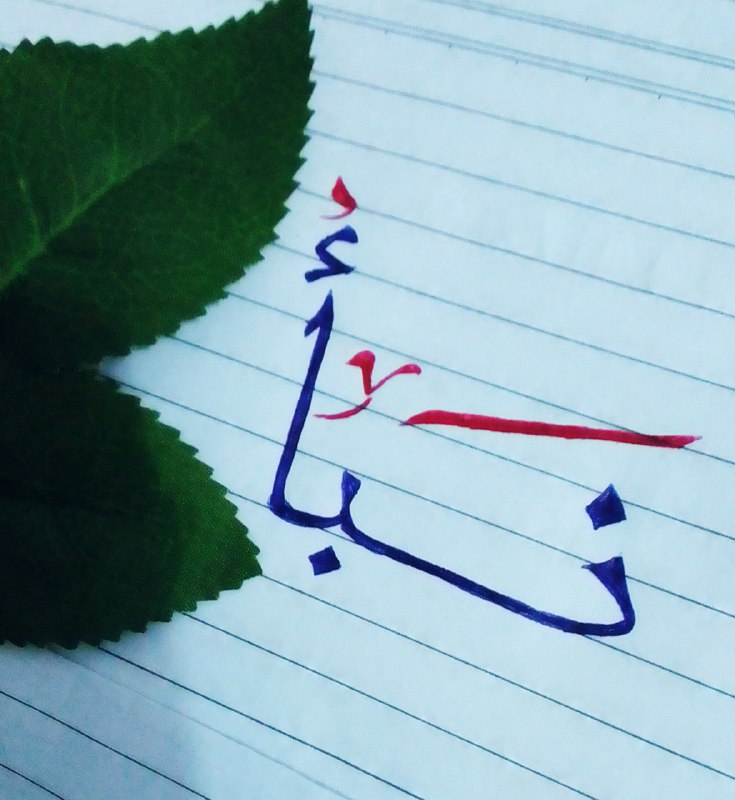 نَبَأُ